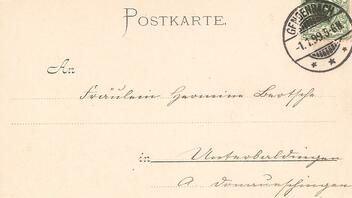 POSTKARTE.
GENGENBACH
-1.7.99.5-6N.
An
Fräulein Hermine Bertsche
in Unterbaldingen
A. Donaueschingen